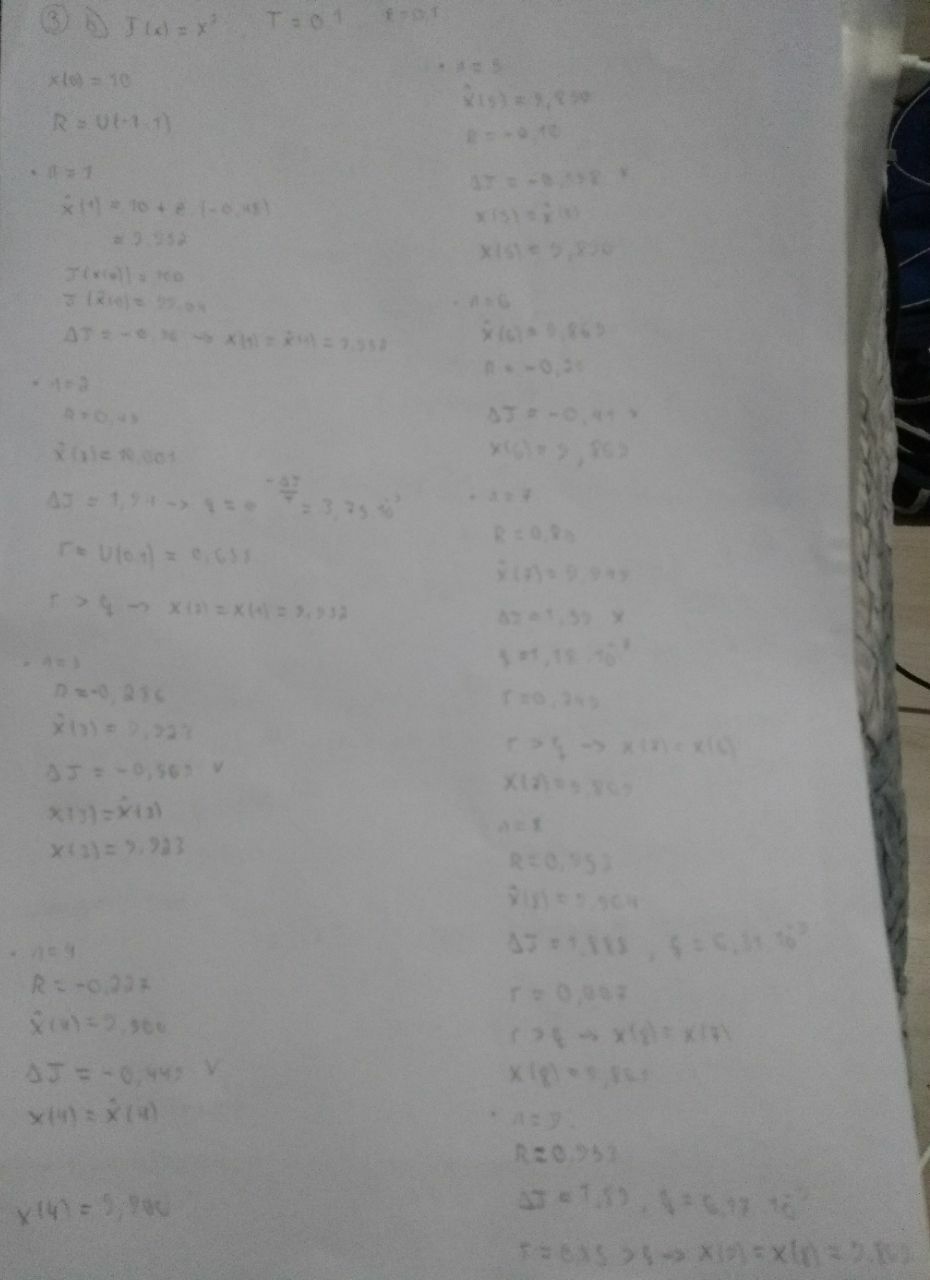 ③ b) J(x) = x² T = 0.1 ε=0.1
x(0) = 10
R = U(-1.1)
• n = 1
x̂(1) = 10 + ε.(-0,48)
= 9.952
J(x(0)) = 100
J(x̂(1)) = 99.04
ΔJ = -0.96 → x(1) = x̂(1) = 9.952
• n=2
R=0,49
x̂(2) = 10.001
q = e^(-ΔJ/T)
r = U(0.1) = 0.655
r > q → x(2) = x(1) = 9.952
• n=3
R=-0,286
x̂(3) = 9,923
ΔJ = -0,569 v
x(3)=x̂(3)
x(3) = 9.923
• n=4
R = -0.227
x̂(4)=9.900
ΔJ = -0,449 v
x(4) = x̂(4)
x(4) = 9,900
• n=5
x̂(5) = 9,890
R=-0,10
ΔJ = -0.198 v
x(5) = x̂(5)
x(5) = 9,890
• n=6
x̂(6) = 9.869
ΔJ = -0,41 v
x(6) = 9,869
• n=7
R = 0,80
x̂(7) = 9.949
ΔJ=1,59 x
r=0,249
r > q → x(7) = x(6)
x(7)=9.869
n=8
R=0,953
x̂(8) = 9.964
r > q → x(8) = x(7)
x(8) = 9,869
• n=9
R=0.953
→ x(9) = x(8) = 9.869